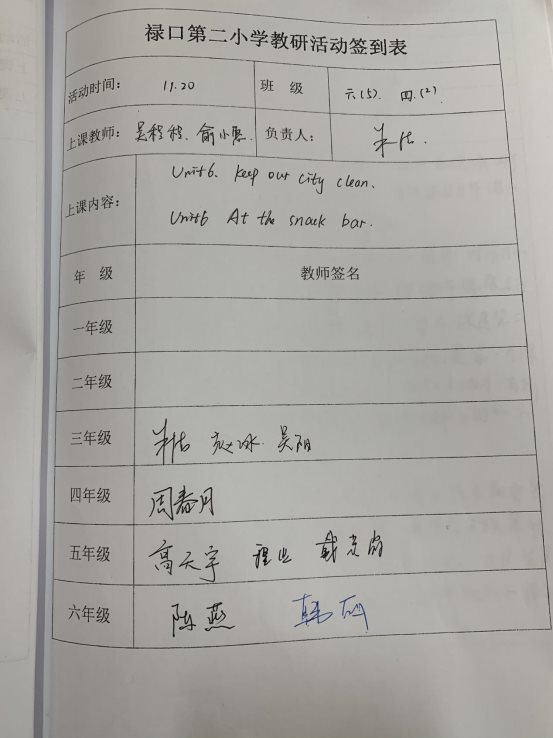 禄口第二小学教研活动签到表
活动时间： 11.20 班 级 六(5). 四.(2)
上课教师： 吴程程、俞小惠. 负责人：
Unit6. Keep our city clean.
上课内容：
Unit6 At the snack bar.
年 级 教师签名
一年级
二年级
三年级 赵冰. 吴阳
四年级 周春月
五年级 高天宇
六年级 陈燕 韩